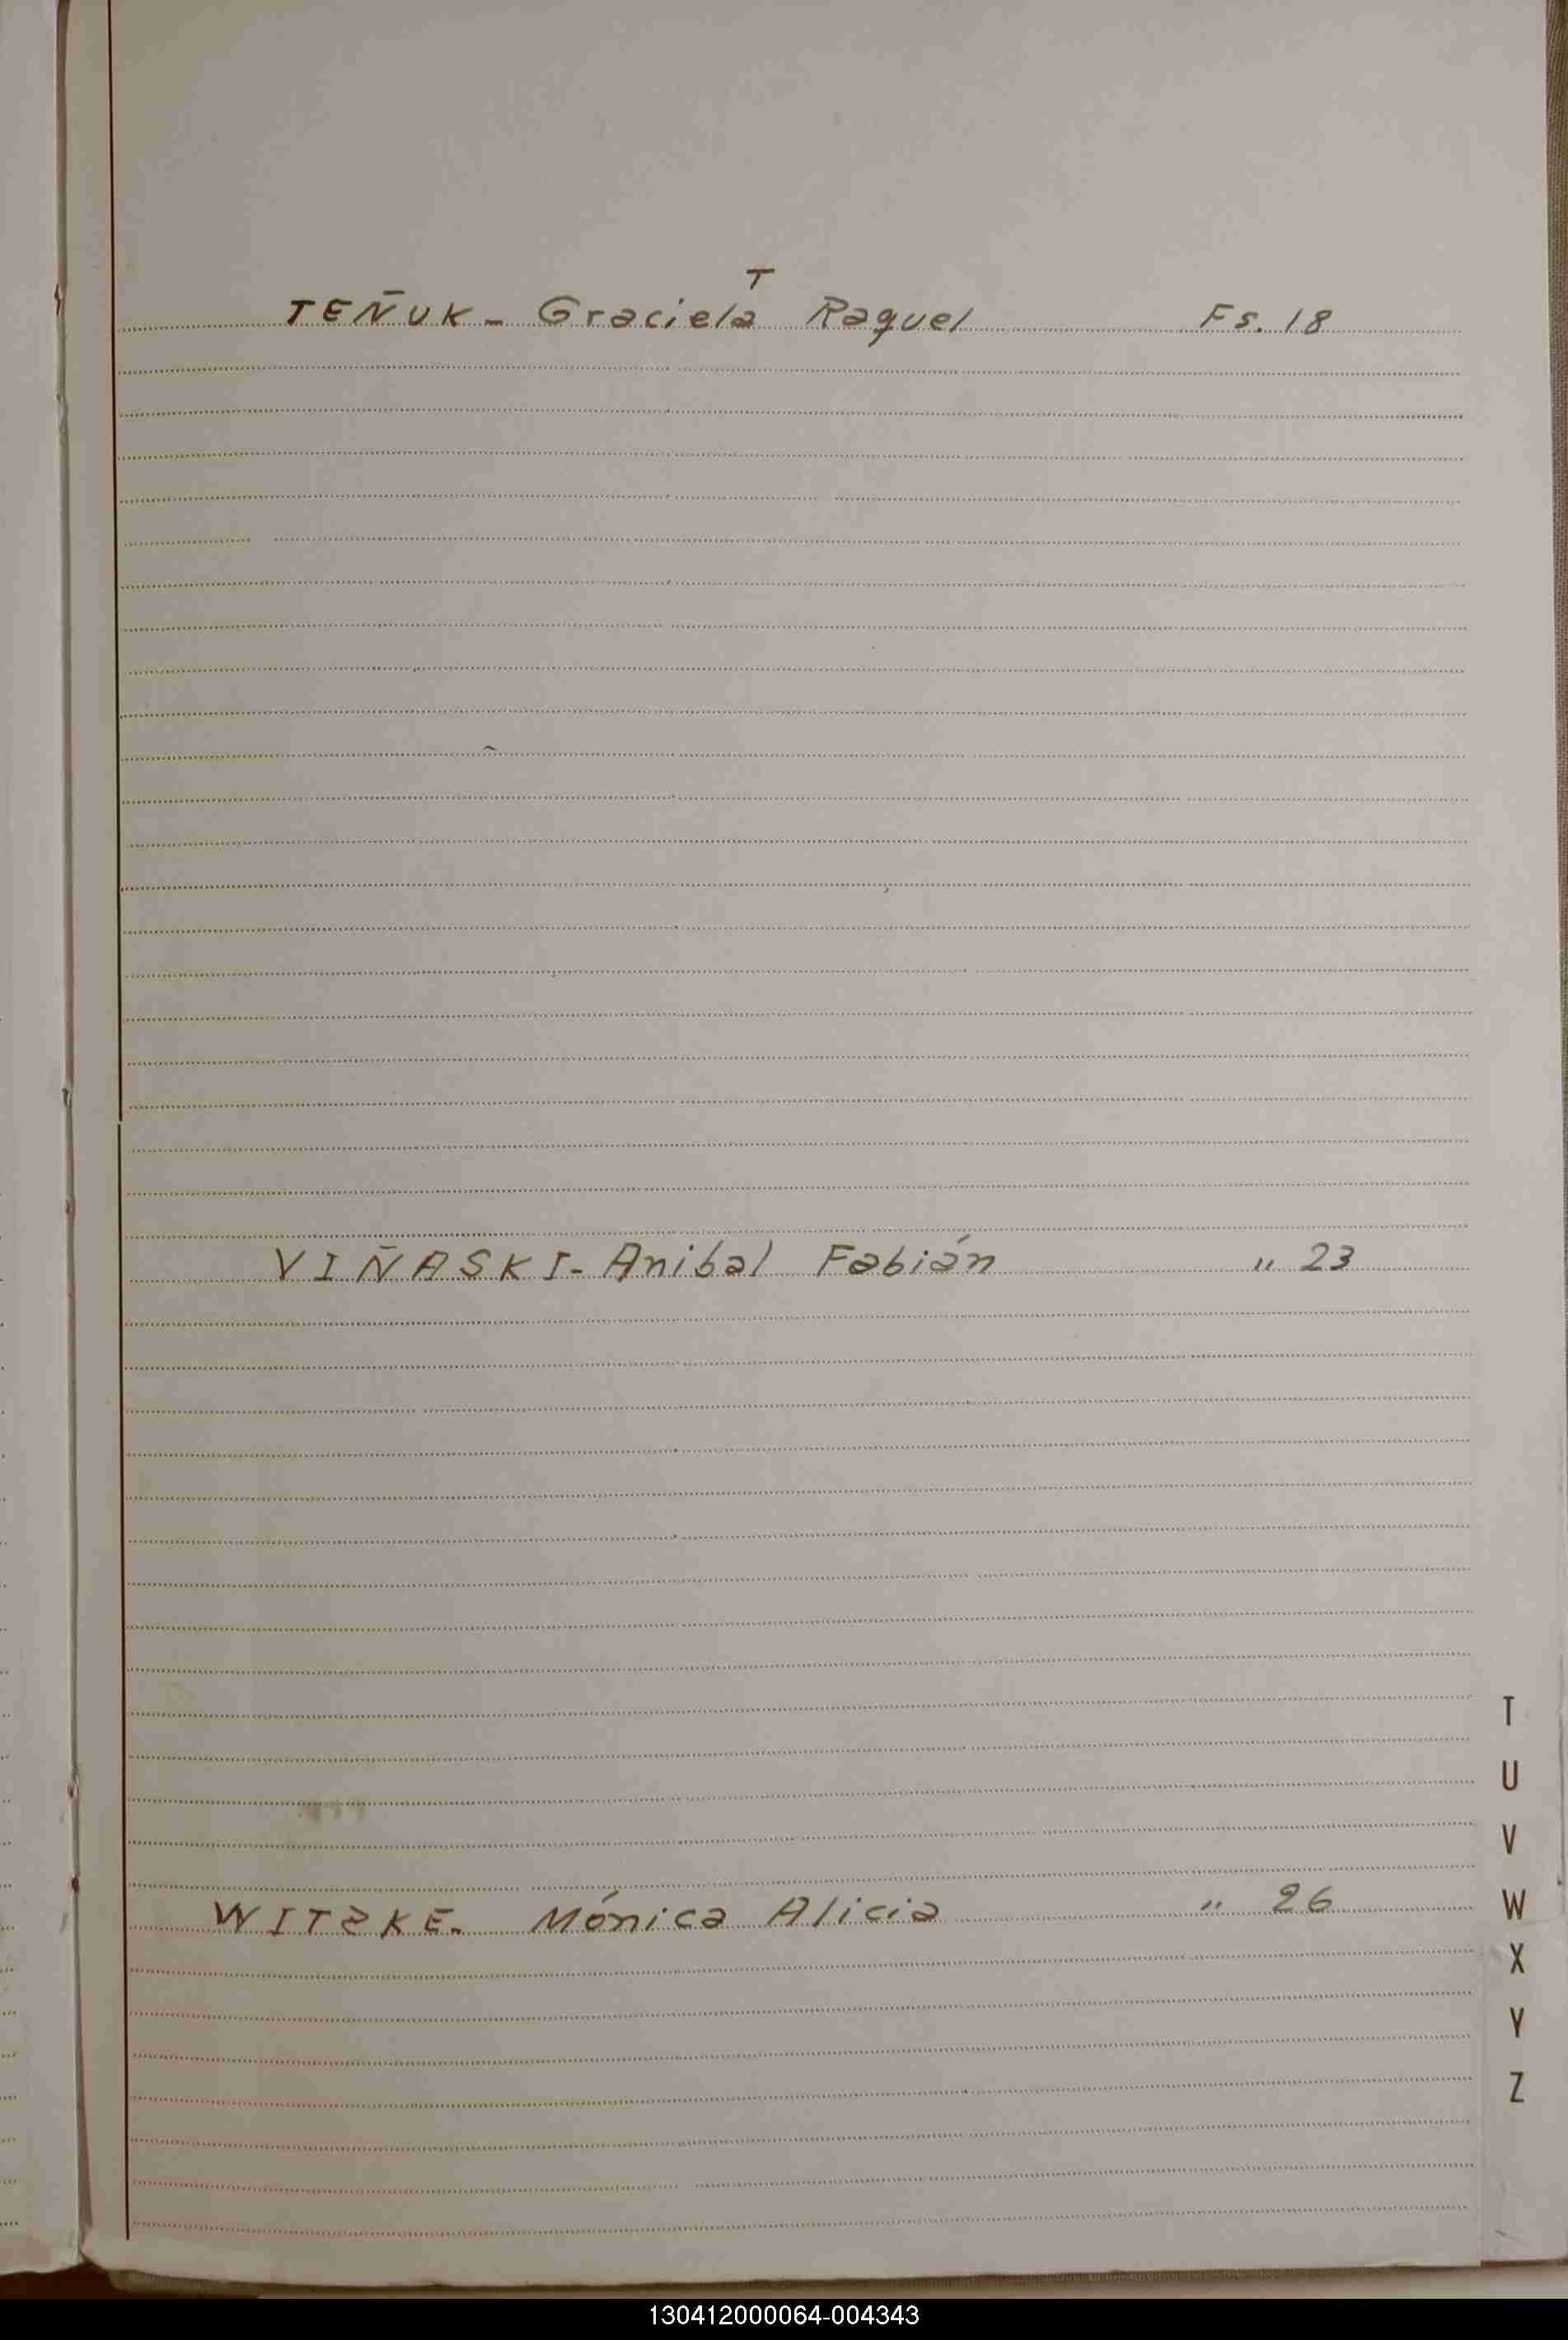 T
TEÑUK- Graciela Raquel Fs. 18
VIÑASKI- Anibal Fabián " 23
WITZKE- Mónica Alicia " 26
T
U
V
W
X
Y
Z
130412000064-004343